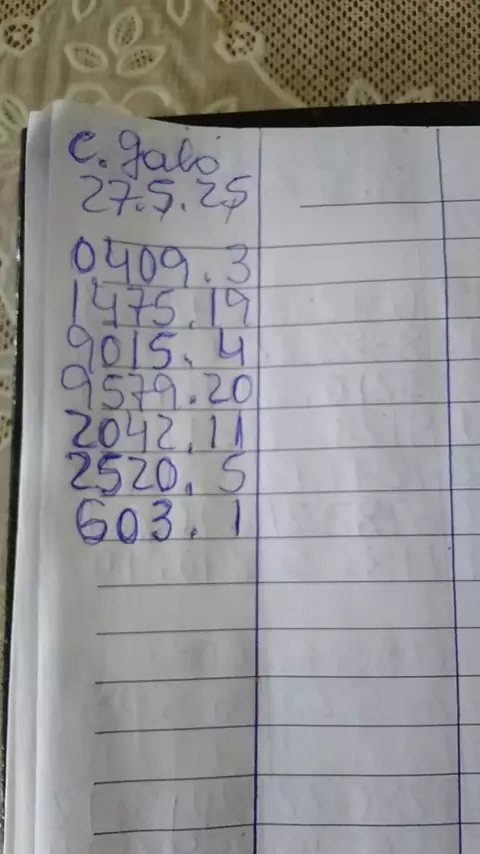 c. galo
27.5.25
0409. 3
1475. 19
9015. 4
9579. 20
2042. 11
2520. 5
603. 1